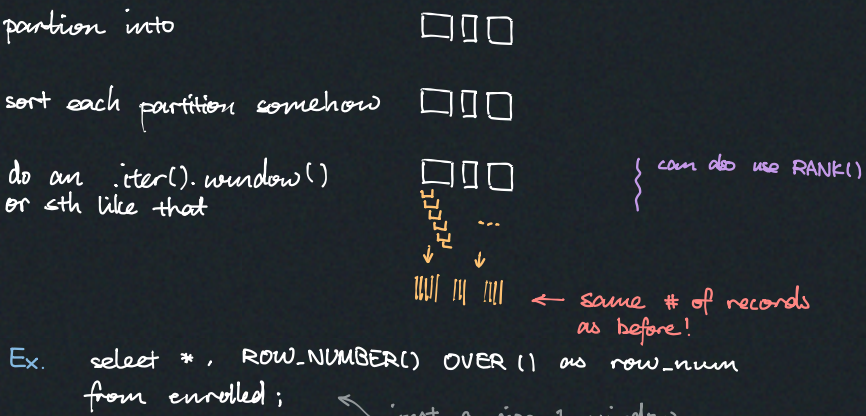 partion into
sort each partition somehow
do an .iter().window()
or sth like that
can also use RANK()
...
← same # of records
as before!
Ex. select *, ROW_NUMBER() OVER () as row_num
from enrolled;